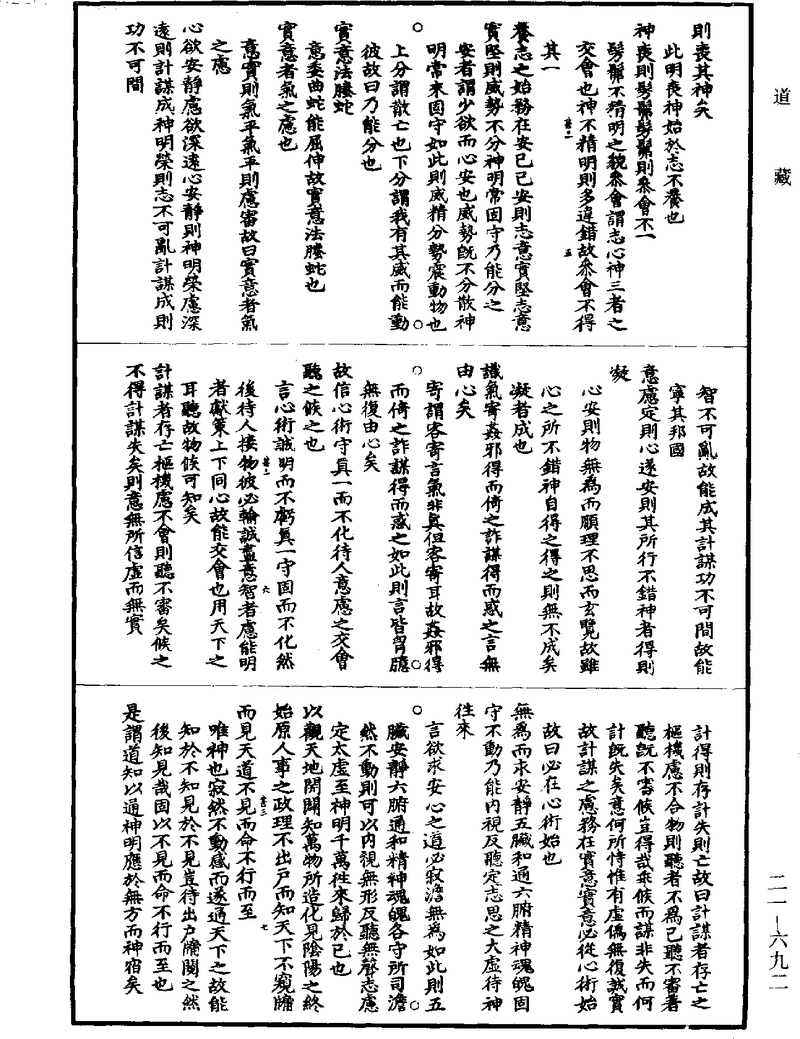 道藏
則喪其神矣
此明喪神始於志不養也
神喪則髣髴髣髴則叅會不一
髣髴不精明之貌叅會謂志心神三者之
交會也神不精明則多違錯故叅會不得
其一
養志之始務在安己己安則志意實堅志意
實堅則威勢不分神明常固守乃能分之
安者謂少欲而心安也威勢旣不分散神
明常來固守如此則威精分勢震動物也
上分謂散亡也下分謂我有其威而能動
彼故曰乃能分也
實意法螣蛇
意委曲蛇能屈伸故實意法螣蛇也
實意者氣之慮也
意實則氣平氣平則慮審故曰實意者氣
之慮
心欲安靜慮欲深遠心安靜則神明榮慮深
遠則計謀成神明榮則志不可亂計謀成則
功不可間
智不可亂故能成其計謀功不可間故能
寧其邦國
意慮定則心遂安則其所行不錯神者得則
凝
心安則物無為而順理不思而玄覽故雖
心之所不錯神自得之得之則無不成矣
凝者成也
識氣寄姦邪得而倚之詐謀得而惑之言無
由心矣
寄謂客寄言氣非真但客寄耳故姦邪得
而倚之詐謀得而惑之如此則言皆胷臆
無復由心矣
故信心術守真一而不化待人意慮之交會
聽之候之也
言心術誠明而不虧真一守固而不化然
後待人接物彼必輸誠盡意智者慮能明
者獻策上下同心故能交會也用天下之
耳聽故物候可知矣
計謀者存亡樞機慮不會則聽不審矣候之
不得計謀失矣則意無所信虛而無實
計得則存計失則亡故曰計謀者存亡之
樞機慮不合物則聽者不為己聽不審著
聽旣不審候豈得哉乖候而謀非失而何
計旣失矣意何所恃惟有虛僞無復誠實
故計謀之慮務在實意實意必從心術始
故曰必在心術始也
無為而求安靜五臟和通六腑精神魂魄固
守不動乃能內視反聽定志思之大虛待神
往來
言欲求安心之道必寂澹無為如此則五
臟安靜六腑通和精神魂魄各守所司澹
然不動則可以內視無形反聽無聲志慮
定太虛至神明千萬往來歸於己也
以觀天地開闢知萬物所造化見陰陽之終
始原人事之政理不出戶而知天下不窺牖
而見天道不見而命不行而至
唯神也寂然不動感而遂通天下之故能
知於不知見於不見豈待出戶牖闚之然
後知見哉固以不見而命不行而至也
是謂道知以通神明應於無方而神宿矣
二一—六九二